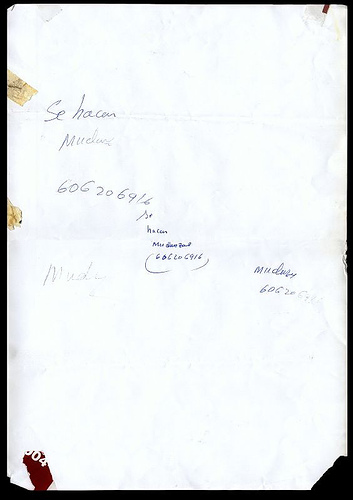 Se hacen
Mudanz
606206916
Se
hacen
Mudanzas
(606206916)
Muda
Mudanz
606206916
004